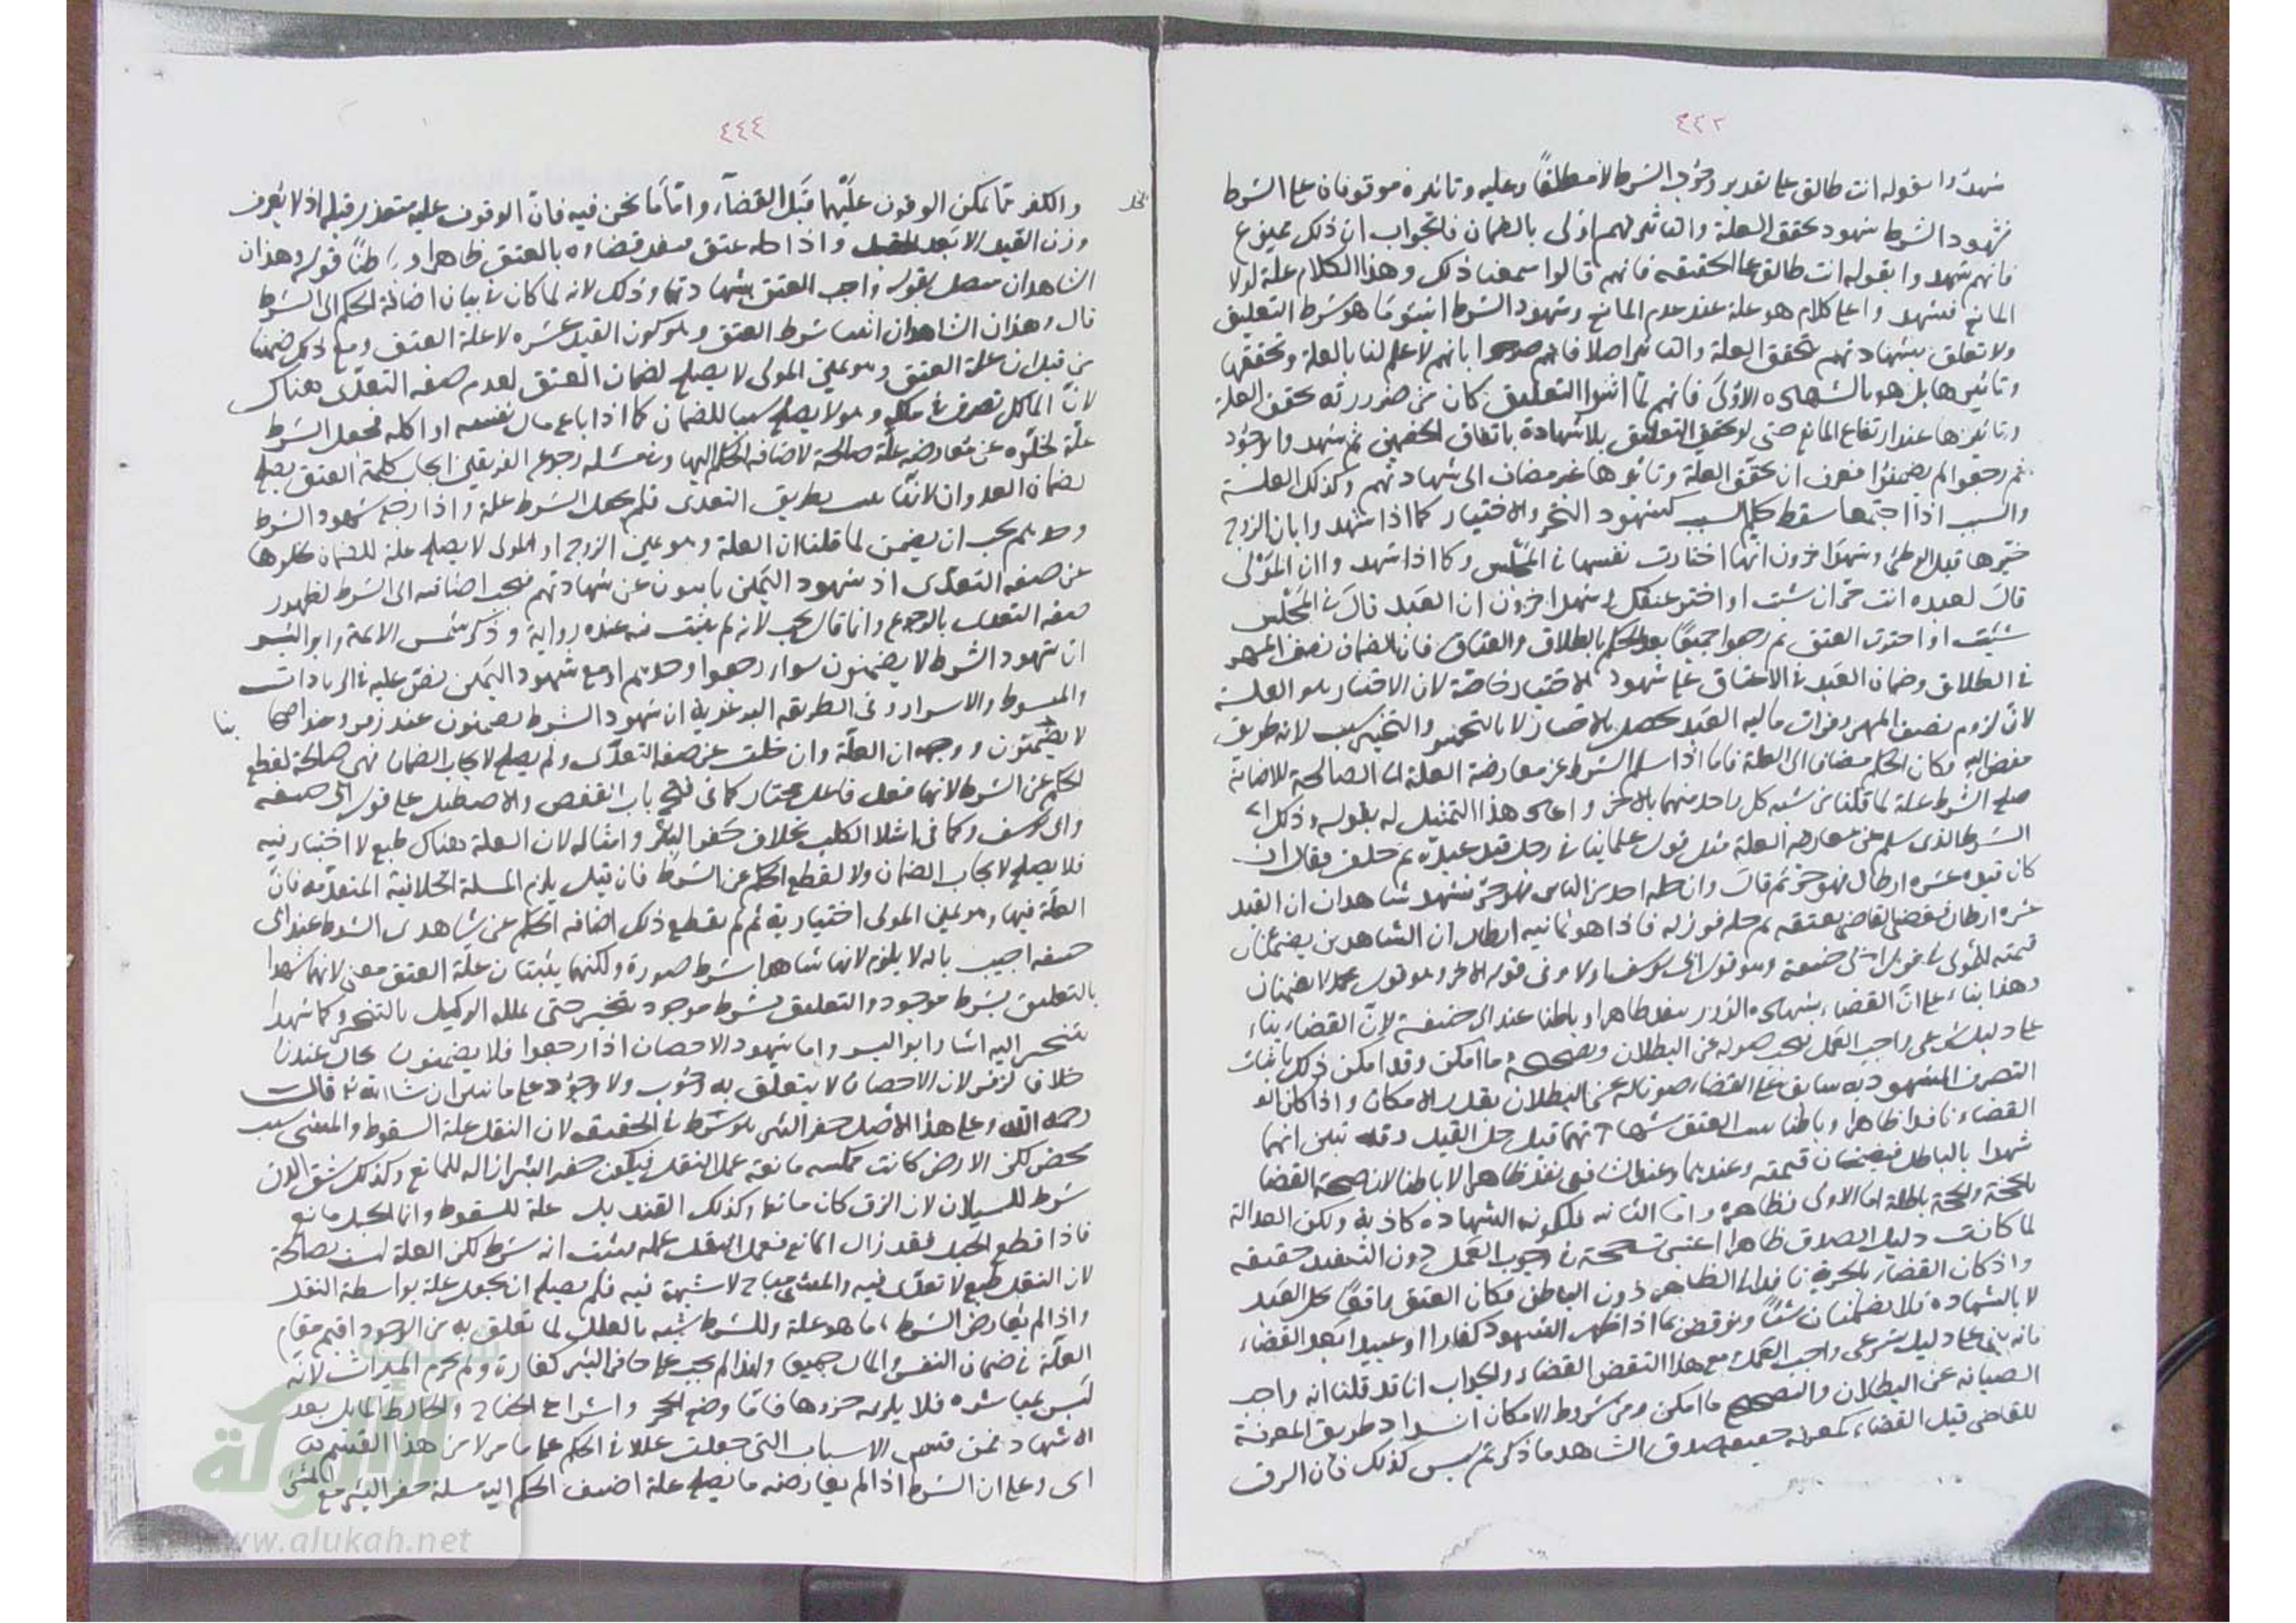 ٤٤٣
شهدوا بقوله انت طالق على تقدير وجود الشرط لا مطلقا وعليه وتاثيره موقوفان على الشرط
فشهود الشرط شهود تحقق العلة والتاثير فهم اولى بالضمان فالجواب ان ذلك ممنوع
فانهم شهدوا بقوله انت طالق على الحقيقة فانهم قالوا سمعنا ذلك وهذا الكلام علة لولا
المانع فشهدوا على كلام هو علة عند عدم المانع وشهود الشرط اثبتوا ما هو شرط التعليق
ولا تعلق بشهادتهم لتحقق العلة والتاثير اصلا فانهم صرحوا بانهم لا علم لنا بالعلة وتحققها
وتاثيرها بل هو بالشهادة الاولى فانهم لما اثبتوا التعليق كان من ضرورته تحقق العلة
وتاثيرها عند ارتفاع المانع حتى لو تحقق التعليق بلا شهادة باتفاق الخصمين ثم شهدوا بالوجود
ثم رجعوا لم يضمنوا فعرف ان تحقق العلة وتاثيرها غير مضاف الى شهادتهم وكذلك العلة
والسبب اذا اجتمعا سقط حكم السبب كشهود التخير والاختيار كما اذا شهدوا بان الزوج
خيرها قبل الوطئ وشهد اخرون انها اختارت نفسها في المجلس وكما اذا شهدوا ان المولى
قال لعبده انت حر ان شئت او اختر عتقك وشهد اخرون ان العبد قال في المجلس
شئت او اخترت العتق ثم رجعوا جميعا بعد الحكم بالطلاق والعتاق فان الضمان نصف المهر
في الطلاق وضمان العبد في الاعتاق على شهود الاختيار خاصة لان الاختيار هو العلة
لان لزوم نصف المهر وفوات مالية العبد يحصل بالاختيار لا بالتخير والتخير سبب لانه طريق
مفض اليه فكان الحكم مضافا الى العلة فاما اذا سلم الشرط عن معارضة العلة الصالحة للاضافة
صلح الشرط علة لما قلنا من شبه كل واحد منهما بالاخر وذلك اي
الشرط الذي سلم عن معارضة العلة مثل قول علمائنا في رجل قيد عبده ثم حلف فقال ان
كان قيده عشرة ارطال فهو حر ثم قال وان حله احد من الناس فهو حر فشهد شاهدان ان القيد
عشرة ارطال فقضى القاضي بعتقه ثم حله فوزنه فاذا هو ثمانية ارطال ان الشاهدين يضمنان
قيمته للمولى في قول ابي حنيفة وهو قول ابي يوسف اولا وفي قوله الاخر وهو قول محمد لا يضمنان
وهذا بناء على ان القضاء بشهادة الزور ينفذ ظاهرا وباطنا عند ابي حنيفة لان القضاء بناء
على دليل شرعي واجب العمل فيجب صونه عن البطلان وتصحيحه ما امكن وقد امكن ذلك باثبات
التصرف المشهود به سابقا على القضاء صونا له عن البطلان بقدر الامكان واذا كان
القضاء نافذا ظاهرا وباطنا العتق بشهادتهما قبل حل القيد وقد تبين انهما
شهدا بالباطل فيضمنان قيمته وعندهما وعند الشافعي نفذ ظاهرا لا باطنا لان صحة القضاء
بالحجة والحجة باطلة اما الاولى فظاهرة واما الثانية فلكونه الشهادة كاذبة ولكن العدالة
لما كانت دليل الصدق ظاهرا اعتبرت حجة في وجوب العمل دون التنفيذ حقيقة
واذ كان القضاء بالحرية نافذا في الظاهر دون الباطن فكان العتق واقعا بحل القيد
لا بالشهادة فلا يضمنان شيئا ونوقض بما اذا ظهر الشهود كفارا او عبيدا بعد القضاء
فانه بني على دليل شرعي واجب العمل مع هذا انتقض القضاء والجواب انا قد قلنا انه واجب
الصيانة عن البطلان والتصحيح ما امكن ومن شروط الامكان انسداد طريق المعرفة
للقاضي قبل القضاء كمعرفة حقيقة صدق الشاهد وما ذكرتم ليس كذلك فان الرق
٤٤٤
والكفر مما يمكن الوقوف عليهما قبل القضاء واما ما نحن فيه فان الوقوف عليه متعذر قبله اذ لا يعرف
وزن القيد الا بعد الحل واذا حله عتق فينفذ قضاءه بالعتق ظاهرا وباطنا قوله وهذان
الشاهدان متصل بقوله واجب العتق بشهادتهما وذلك لانه لما كان في بيان اضافة الحكم الى الشرط
قال وهذان الشاهدان اثبتا شرط العتق وهو كون القيد عشرة لا علة العتق ومع ذلك ضمنا
من قبل ان علة العتق وهو يمين المولى لا يصلح لضمان العتق لعدم صفة التعدي هناك
لان المالك تصرف في ملكه وهو لا يصلح سببا للضمان كما اذا باع مال نفسه او اكله فجعل الشرط
علة لخلوه عن معارضة علة صالحة لاضافة الحكم اليها وفي مسئلة رجوع الفريقين ايجاب كلمة العتق يصلح
لضمان العدوان لانها بطريق التعدي فلم يجعل الشرط علة واذا رجع شهود الشرط
وحدهم يجب ان يضمن لما قلنا ان العلة وهو يمين الزوج او المولى لا يصلح علة للضمان لخلوها
عن صفة التعدي اذ شهود اليمين ثابتون عن شهادتهم فيجب اضافته الى الشرط لظهور
صفة التعدي بالرجوع وانما قال يجب لانه لم يثبت فيه عنده رواية وذكر شمس الائمة وابو اليسر
ان شهود الشرط لا يضمنون سواء رجعوا وحدهم او مع شهود اليمين نص عليه في الزيادات
والمبسوط والاسرار وفي الطريقة البرغرية ان شهود الشرط يضمنون عند زفر وعند اصحابنا
لا يضمنون ووجهه ان العلة وان خلت عن صفة التعدي ولم يصلح لايجاب الضمان فهي صالحة لقطع
الحكم عن الشرط لانها فعل فاعل مختار كما في فتح باب القفص والاصطبل على قول ابي حنيفة
وابي يوسف وكما في اشلاء الكلب بخلاف حفر البئر وامثاله لان العلة هناك طبع لا اختيار فيه
فلا يصلح لايجاب الضمان ولا لقطع الحكم عن الشرط فان قيل يلزم المسئلة الخلافية المتقدمة فان
العلة فيها وهو يمين المولى اختيارية ثم لم يقطع ذلك اضافة الحكم عن شاهدي الشرط عند ابي
حنيفة اجيب بانه لا يلزم لانهما شاهدا بشرط صورة ولكنهما يثبتان علة العتق معنى لانهما شهدا
بالتعليق بشرط موجود والتعليق بشرط موجود تنجيز حتى يملكه الوكيل بالتنجيز وكما شهدا
بتنجيز اليه اشار ابو اليسر واما شهود الاحصان اذا رجعوا فلا يضمنون بحال عندنا
خلافا لزفر لان الاحصان لا يتعلق به وجوب ولا وجود على ما نبين ان شاء الله قال
رحمه الله وعلى هذا الاصل حفر البئر هو شرط في الحقيقة لان الثقل علة السقوط والمشي سبب
محض لكن الارض كانت ممسكة مانعة عمل الثقل فيكون حفر البئر ازالة للمانع وكذلك شق الزق
شرط للسيلان لان الزق كان مانعا وكذلك القنديل علة للسقوط وانما الحبل مانع
فاذا قطع الحبل فقد زال المانع فعمل الثقل عمله فثبت انه شرط لكن العلة ليست بصالحة
لان الثقل طبع لا تعدي فيه والمشي مباح لا شبهة فيه فلم يصلح ان يجعل علة بواسطة الثقل
واذا لم يعارض الشرط ما هو علة وللشرط شبه بالعلل لما تعلق به من الوجود اقيم مقام
العلة في ضمان النفس والمال جميعا ولهذا لم يجب على حافر البئر كفارة ولم يحرم الميراث لانه
ليس بمباشرة فلا يلزمه جزاؤها فاما وضع الحجر واشراع الجناح والحائط المائل بعد
الاشهاد فمن قسم الاسباب التي جعلت عللا في الحكم على ما مر لا من هذا القسم
اي وعلى ان الشرط اذا لم يعارضه ما يصلح علة اضيف الحكم اليه مسئلة حفر البئر مع المشي
الألوكة
www.alukah.net